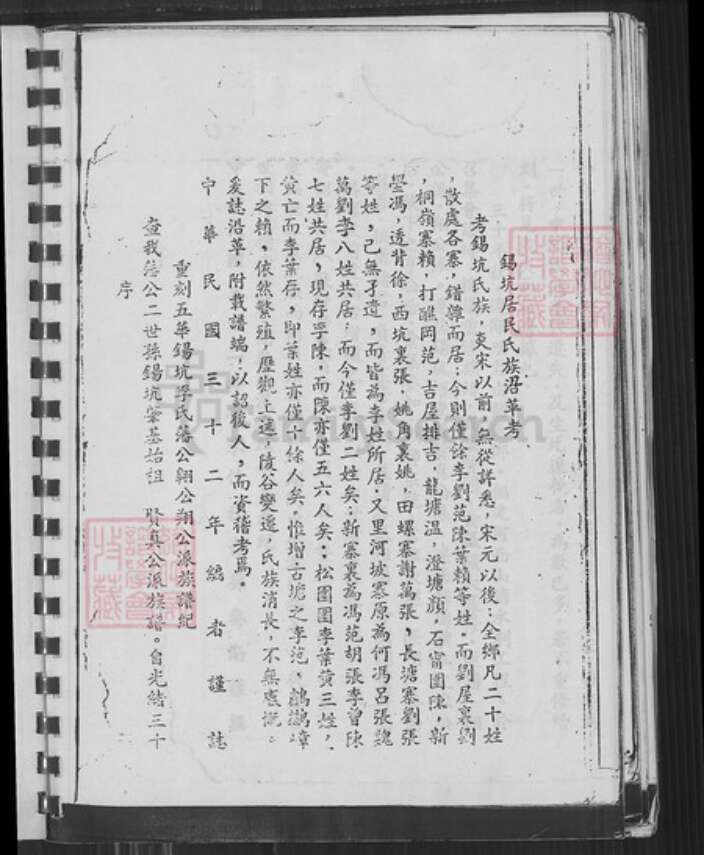 錫坑居民氏族沿革考
考錫坑氏族，爰宋以前，無從詳悉，宋元以後：全鄉凡二十姓
，散處各寨，錯雜而居：今則僅餘李劉范陳葉賴等姓．而劉屋裏劉
，桐嶺寨賴，打醮岡范，吉屋排吉，龍塘溫，澄塘顏，石甯圍陳，新
壆馮，透背徐，西坑裏張，姚角裏姚，田螺寨謝萬張，長塘寨劉張
等姓，已無孑遺，而皆為李姓所居．又里河坡寨原為何馮呂張魏
萬劉李八姓共居；而今僅李劉二姓矣；新寨裏為馮范胡張李曾陳
七姓共居，現存李陳，而陳亦僅五六人矣；松園圍李葉黃三姓，
黃亡而李葉存，即葉姓亦僅十餘人矣，惟增古塘之李范，鸕鶿嶂
下之賴，依然繁殖，歷觀上述，陵谷變遷，氏族消長，不無感慨．
爰誌沿革，附載譜端，以詔後人，而資稽考焉．
中華民國三十二年編者謹誌
重刻五華錫坑李氏藩公翱公翔公派族譜紀
序
查我德公二世孫錫坑肇基始祖　賢真公派族譜。自光緒三十
收藏
收藏